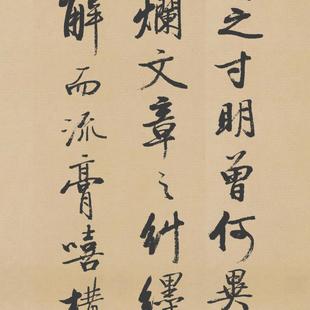 之寸明曾何異
爛文章之糾纆
解而流膏嘻構